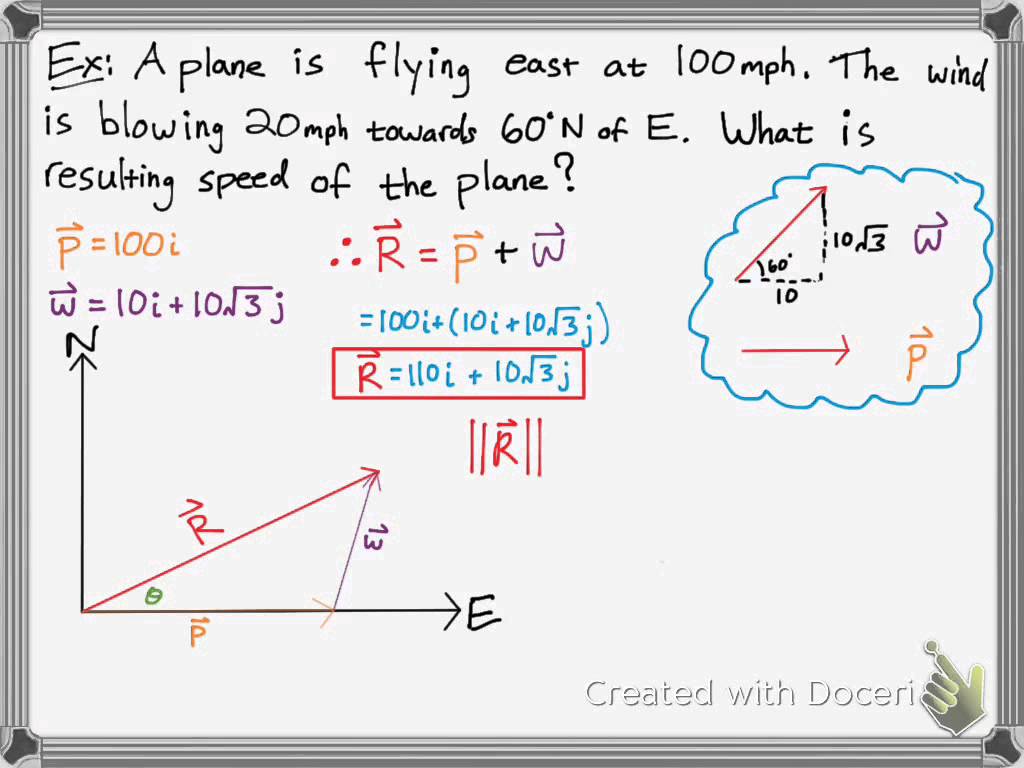 Ex: A plane is flying east at 100mph. The wind
is blowing 20mph towards 60°N of E. What is
resulting speed of the plane?
P⃗ = 100i
w⃗ = 10i + 10√3 j
∴ R⃗ = P⃗ + w⃗
= 100i + (10i + 10√3 j)
R⃗ = 110i + 10√3 j
||R⃗||
60°
10√3
w⃗
10
P⃗
N
R⃗
w⃗
θ
P⃗
E
Created with Doceri